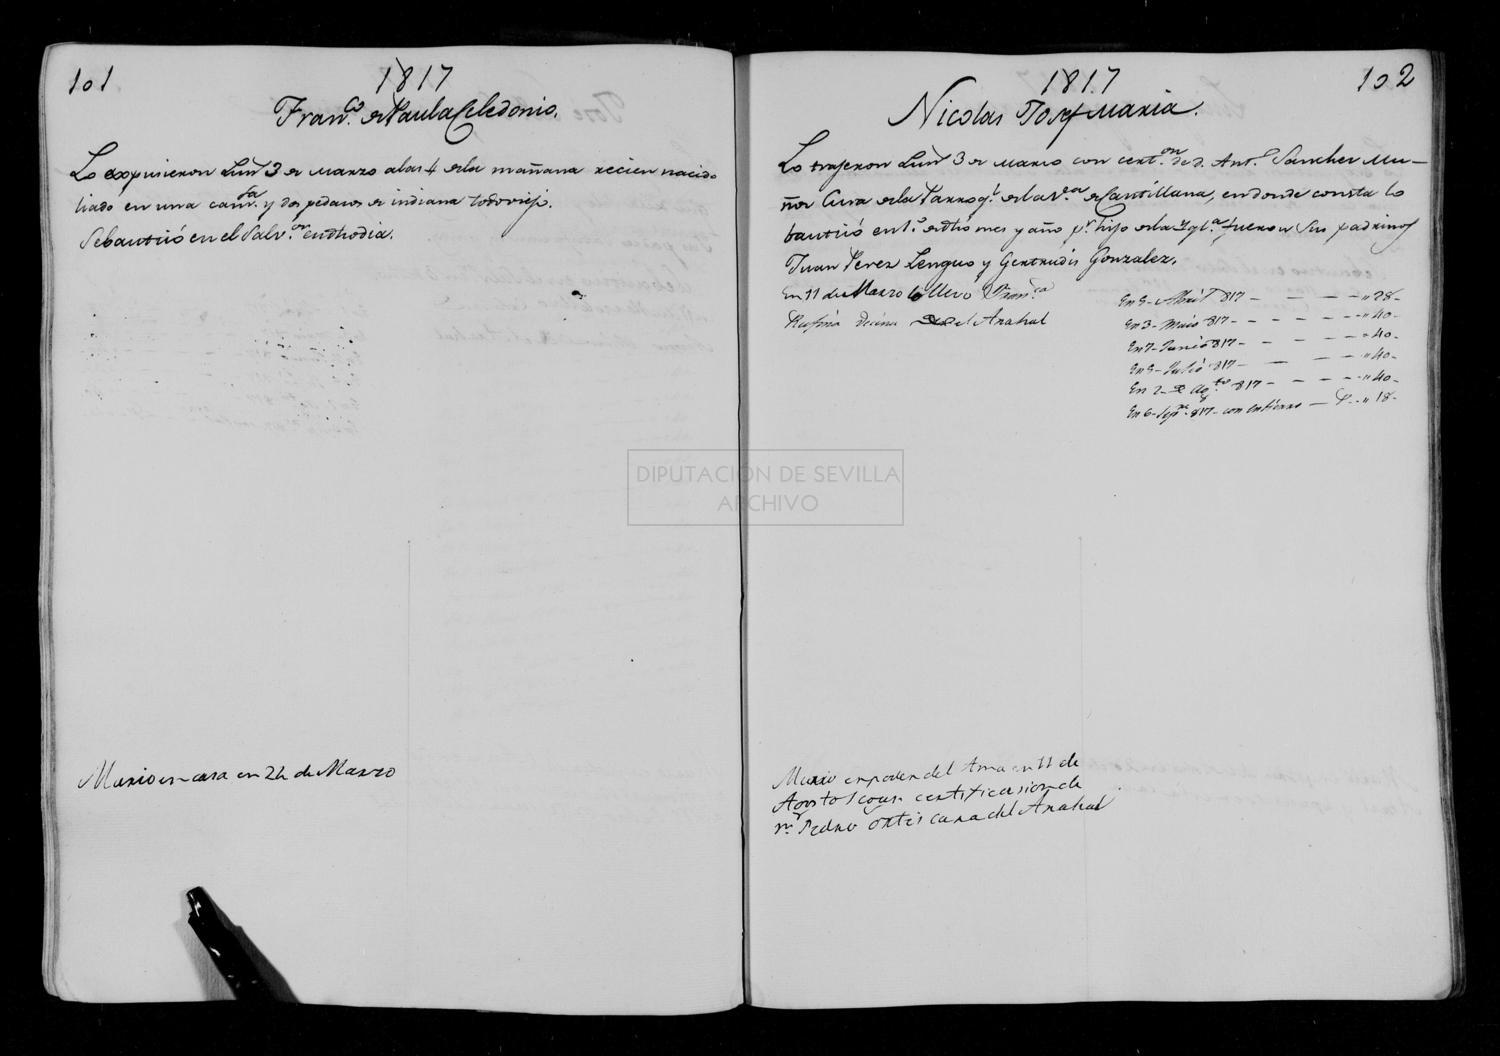 101
1817
Fran.co de Paula Celedonio.
Lo expusieron Lun.s 3 de marzo a las 4 de la mañana recien nacido
liado en una cam.sa y dos pedazos de indiana todo viejo.
Se bautizó en el Salv.or en dho dia.
Murio en casa en 24 de Marzo
1817
102
Nicolas Josef Maria.
Lo trageron Lun.s 3 de marzo con cert.on de d. Ant.o Sanchez Mu-
ñoz Cura de la Parroq.l de la v.a de Cantillana, en donde consta lo
bautizó en 1.o de dho mes y año p.r hijo de la Ygl.a fueron sus padrinos
Juan Perez Lenguo y Gertrudis Gonzalez.
En 11 de Marzo lo llevó Fran.ca
Rufina Vecina del Arahal
En 5- Abril 817 - - - - " 28-
En 3- Maio 817 - - - - " 40-
En 7- Junio 817 - - - - " 40-
En 5- Julio 817 - - - - " 40-
En 2- de Ag.to 817 - - - - " 40-
En 6- Sep.re 817 - con entierro - " 18-
Murio en poder del Ama en 11 de
Agosto certificasion de
Pedro Ortis cura del Arahal
DIPUTACIÓN DE SEVILLA
ARCHIVO